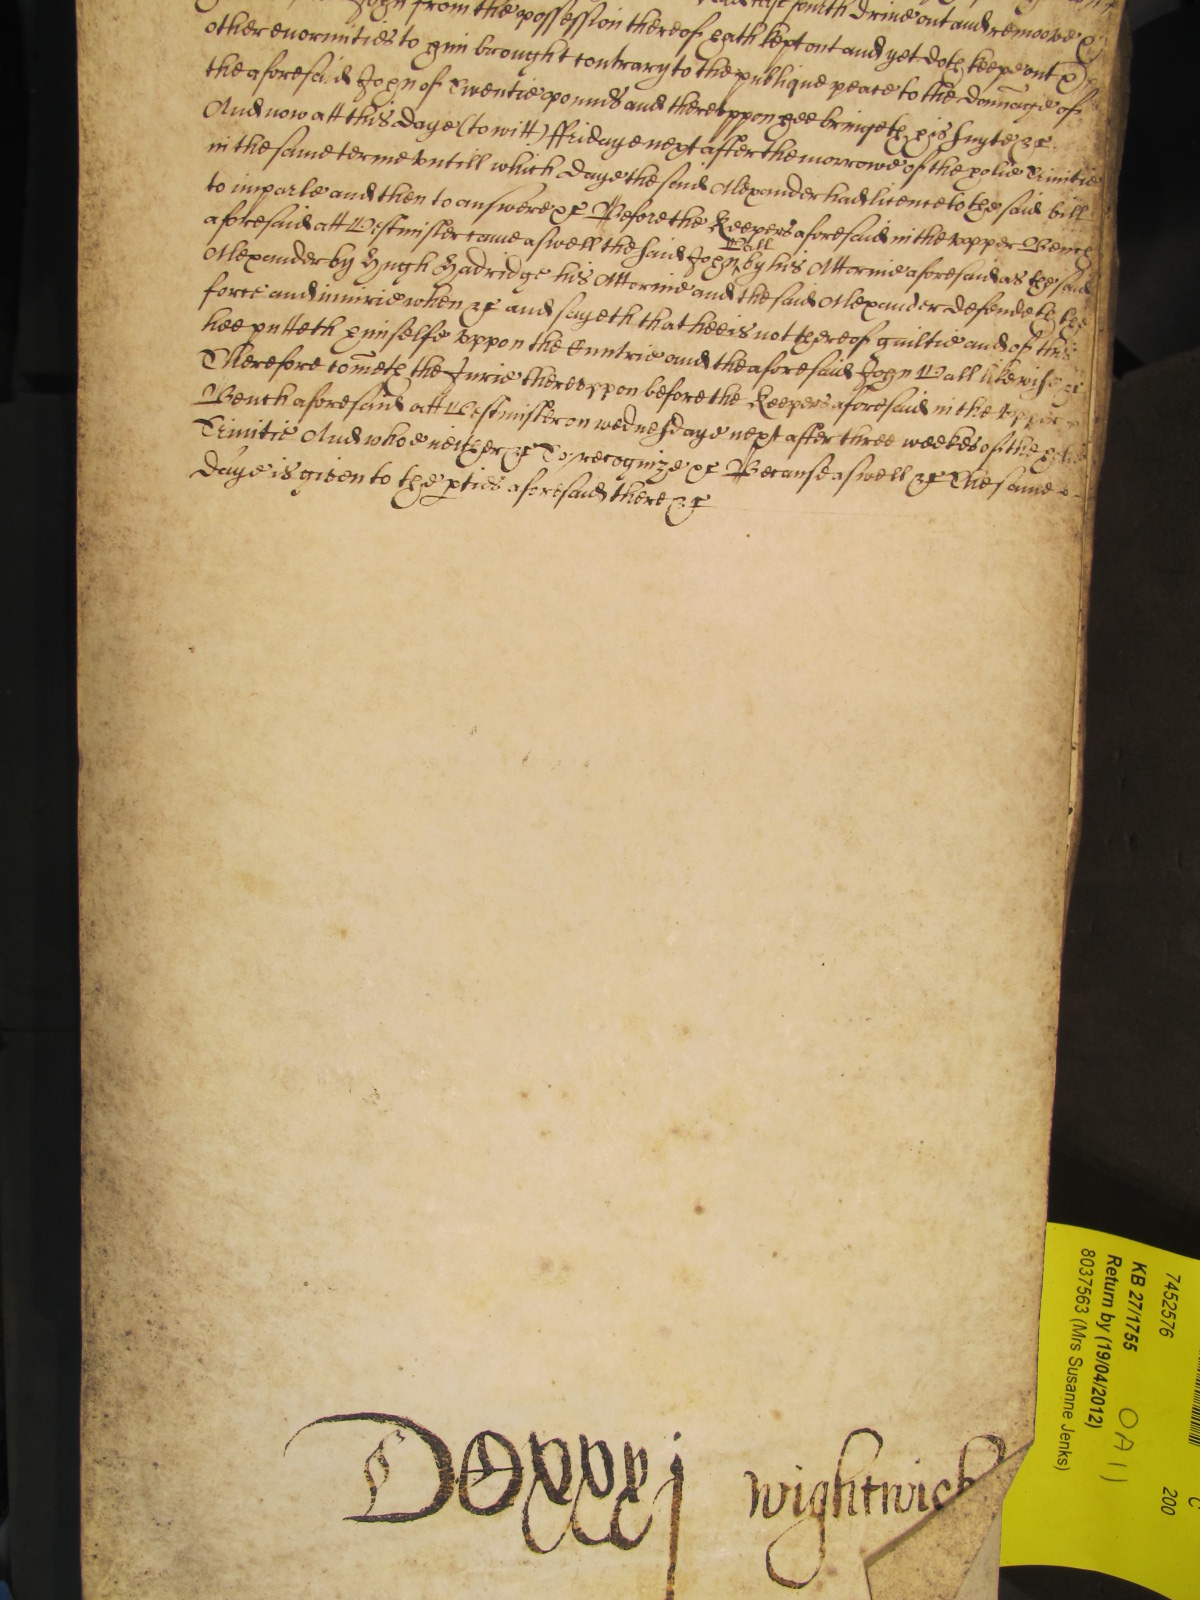 John from the possession thereof hath kept out and yet doth keepe out &
other enormities to him brought contrary to the publique peace to the damage of
the aforesaid John of Twentie pounds and thereuppon hee bringeth his suyte &c
And now att this daye (to witt) ffridaye next after the morrowe of the holie Trinitie
in the same terme untill which daye the said Alexander had licence to the said bill
to imparle and then to answere &c Before the Keepers aforesaid in the upper Bench
aforesaid att Westminster came aswell the said John Wall by his Attornie aforesaid as the said
Alexander by Hugh Hadridge his Attornie and the said Alexander defendeth the
force and iniurie when &c and sayeth that hee is not thereof guiltie and of this
hee putteth himselfe uppon the Cuntrie and the aforesaid John Wall likewise &c
Therefore cometh the Jurie thereuppon before the Keepers aforesaid in the upper
Bench aforesaid att Westminster on wednesdaye next after three weekes of the holie
Trinitie And whoe neither &c To recognize &c Because aswell &c The same
daye is given to the pties aforesaid there &c
DCxxxj wightwick
7452576
KB 27/1755
Return by (19/04/2012)
8037563 (Mrs Susanne Jenks)
OA11
200
C